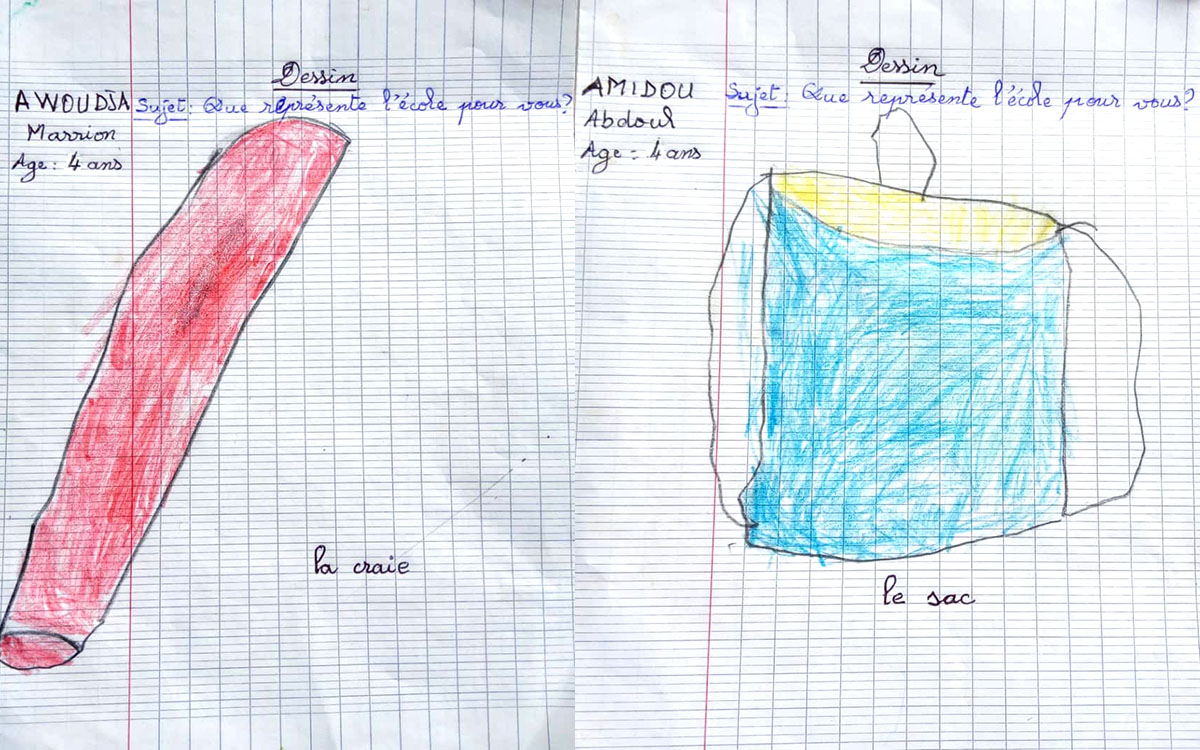 Dessin
AWOUDJA
Sujet : Que représente l'école pour vous?
Marrion
Age : 4 ans
la craie
Dessin
AMIDOU
Sujet : Que représente l'école pour vous?
Abdoul
Age : 4 ans
le sac